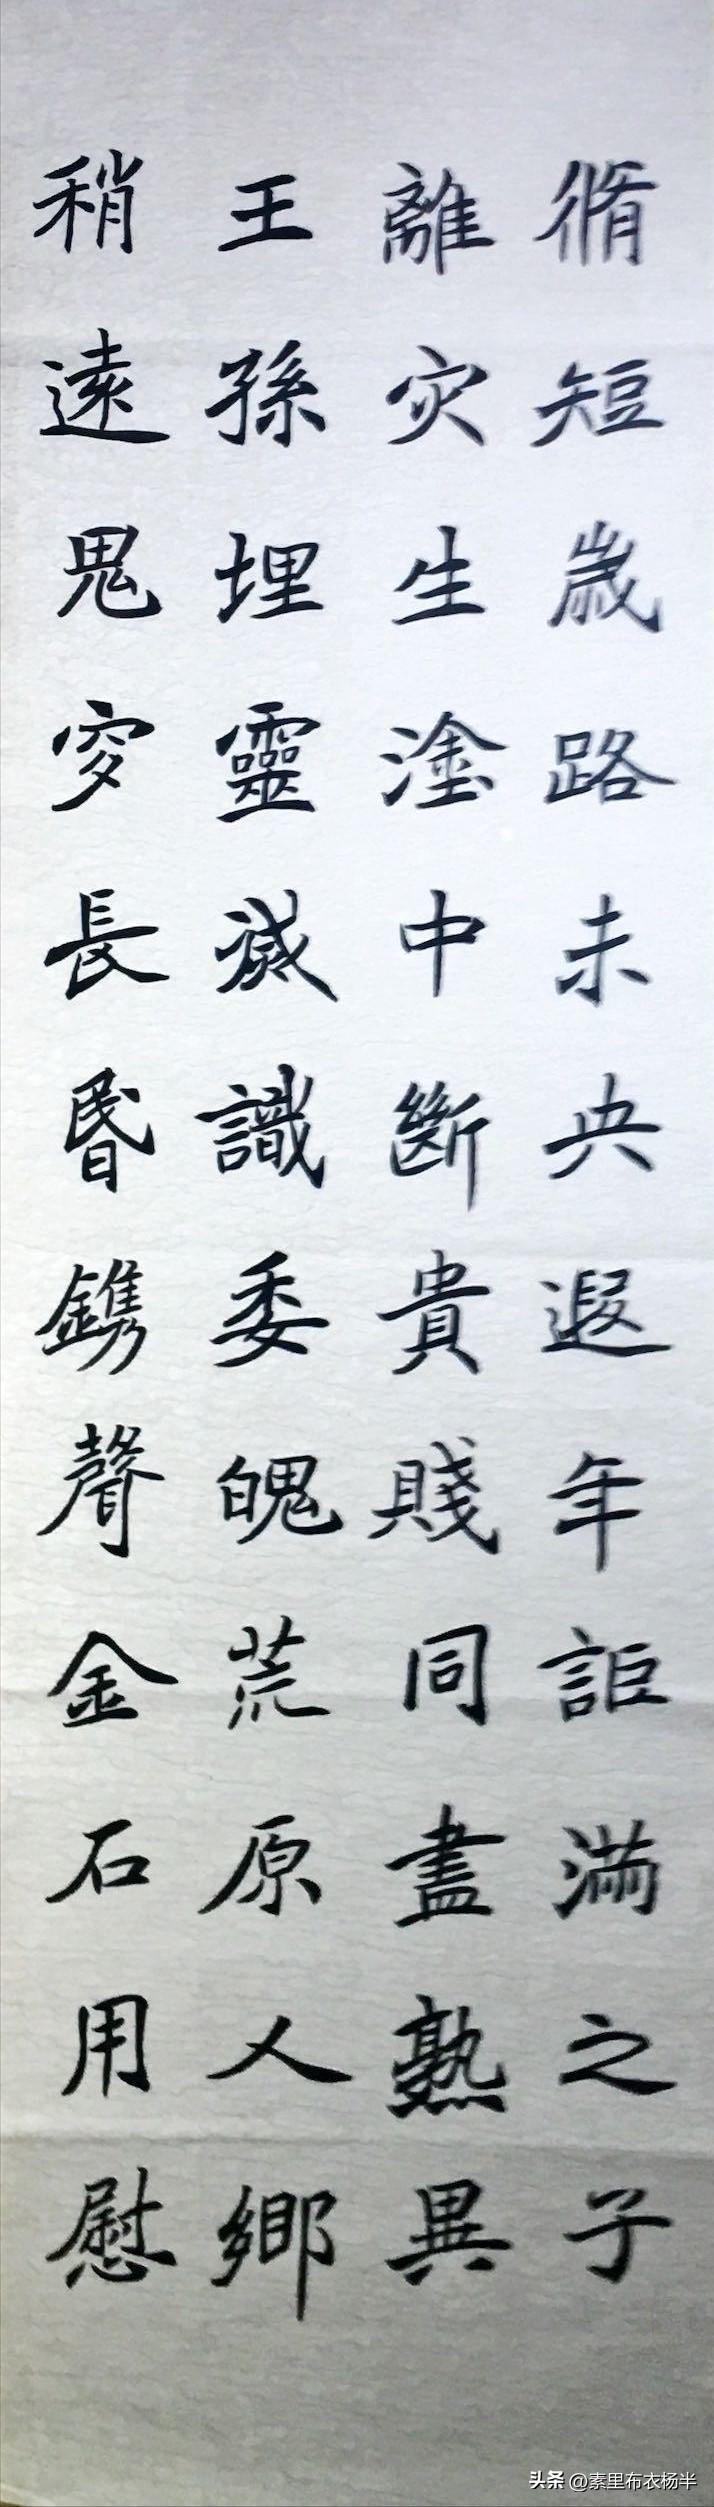 脩短歲路未央遐年詎滿之子
離灾生塗中斷貴賤同盡熟異
王孫埋靈滅識委魄荒原人鄉
稍遠鬼穸長昬鐫聲金石用慰
头条 @素里布衣杨半